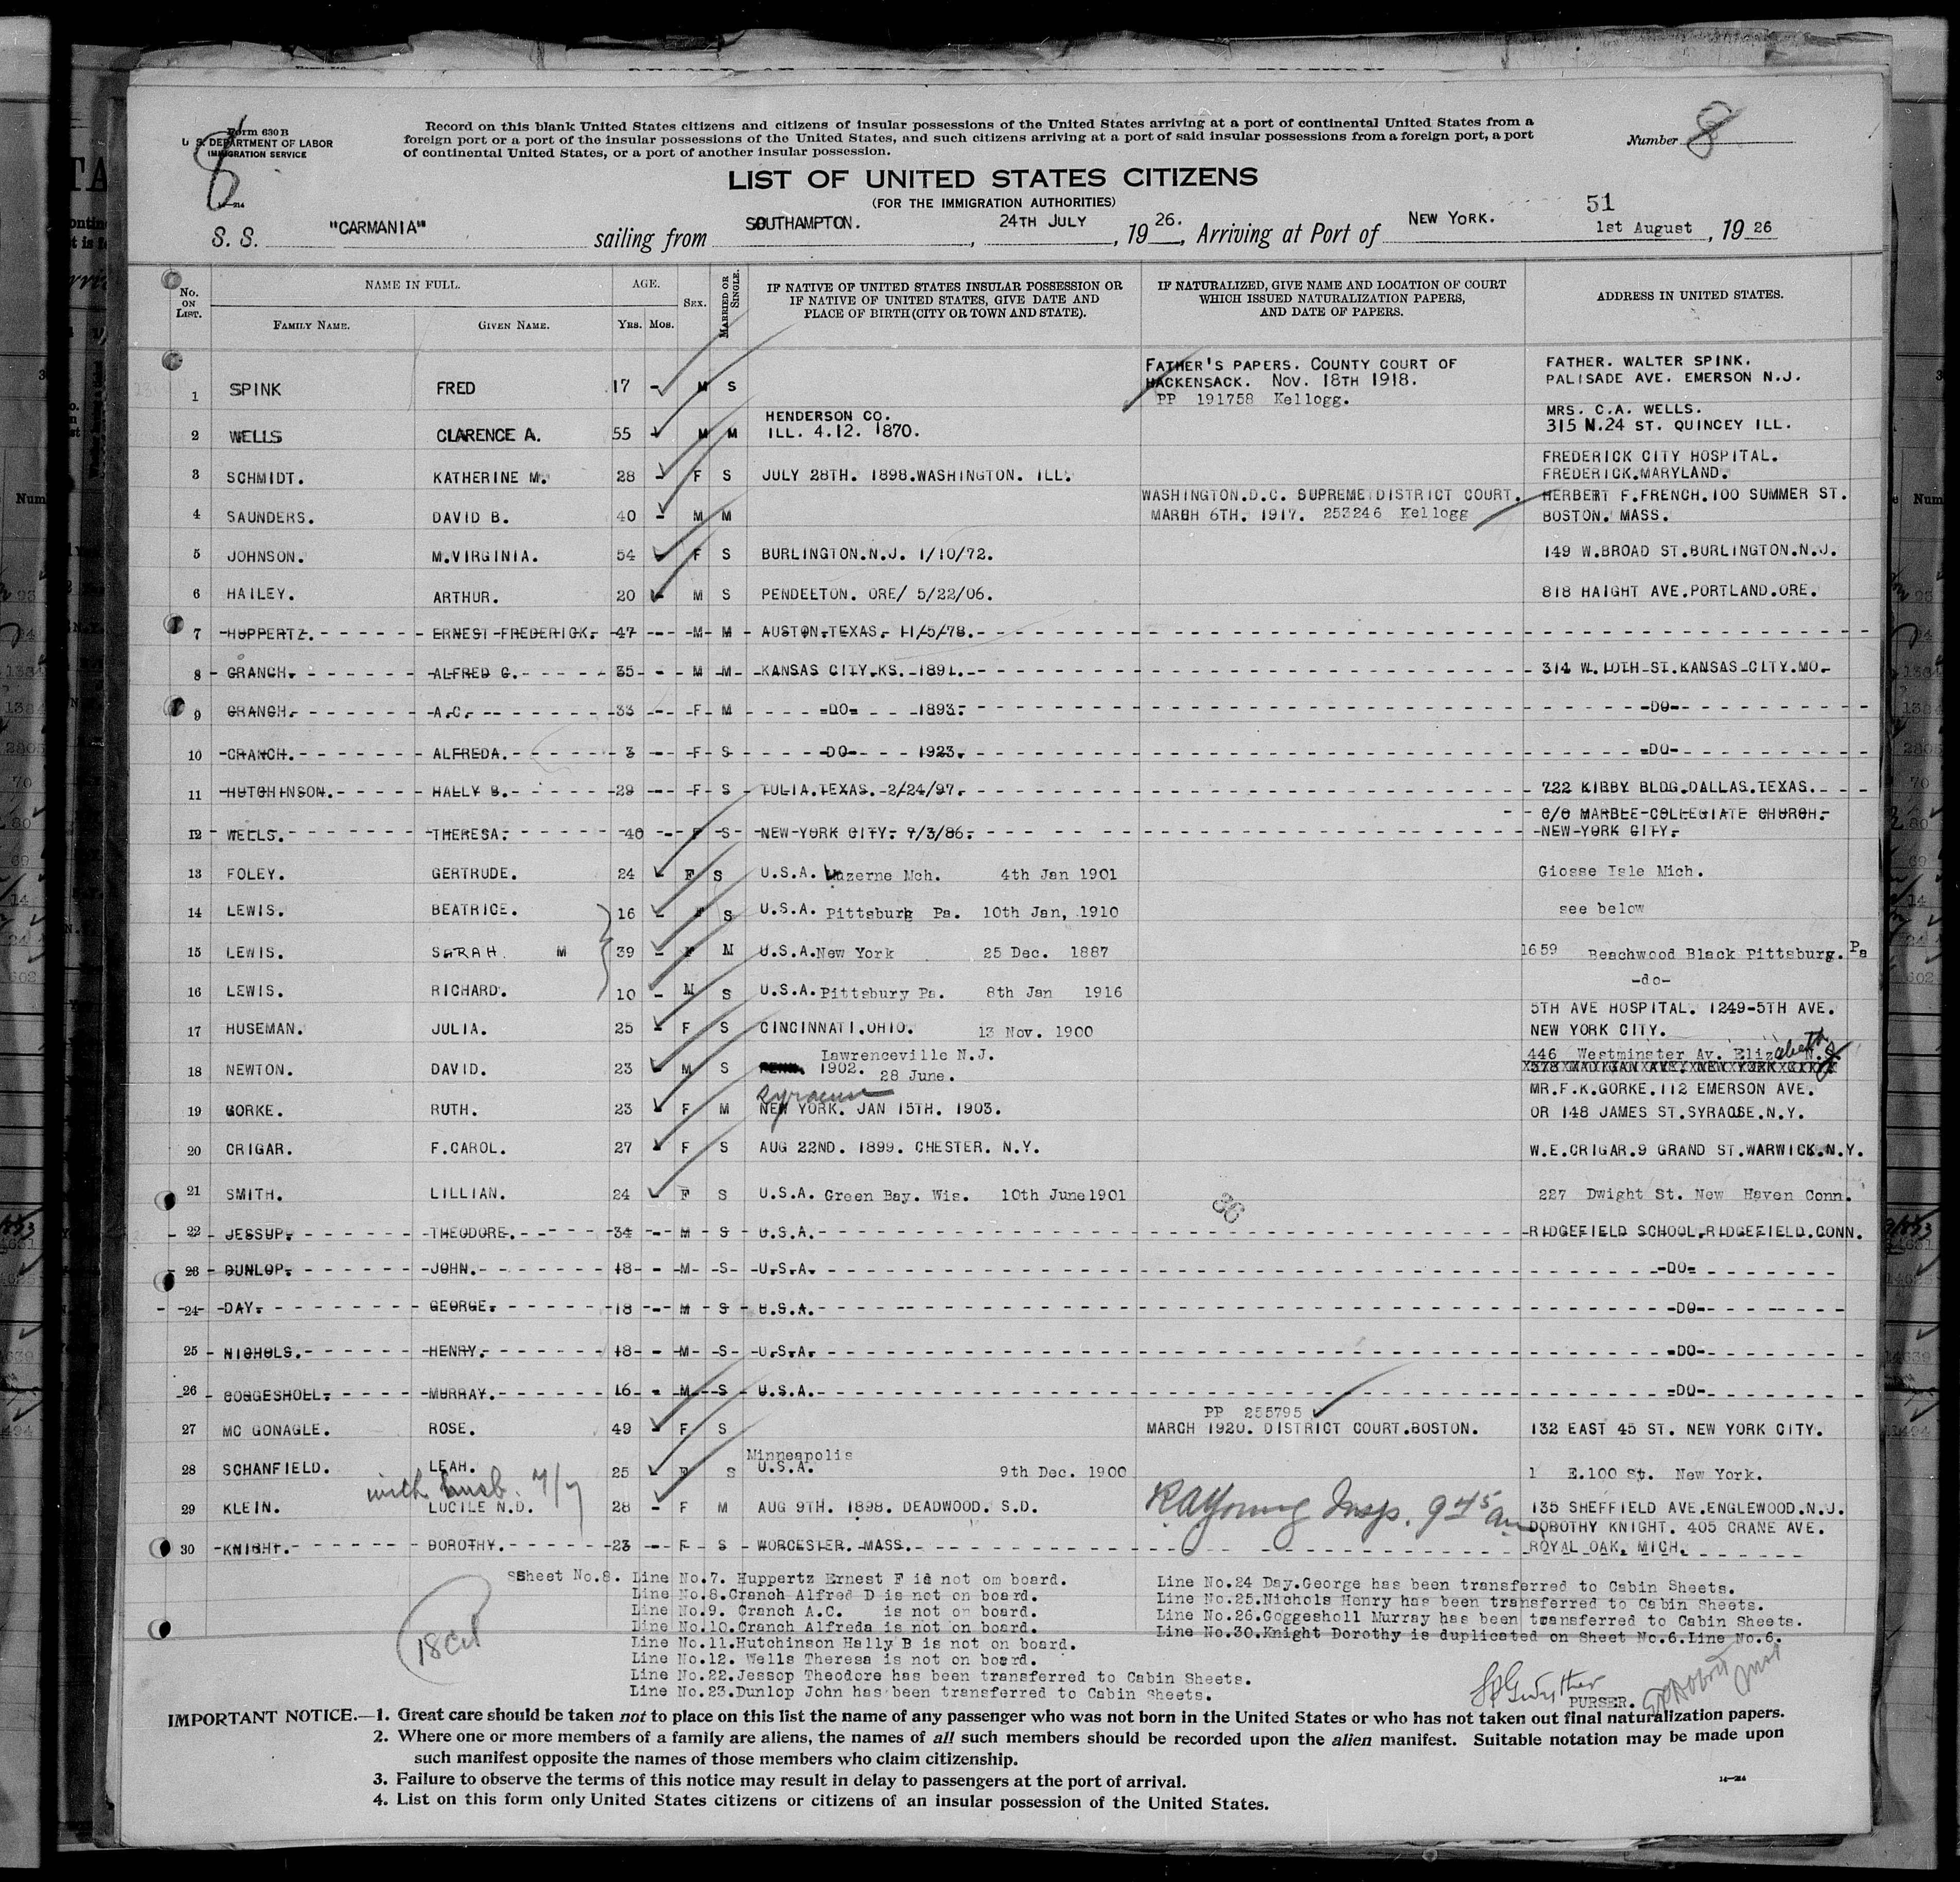 Form 630 B
U. S. DEPARTMENT OF LABOR
IMMIGRATION SERVICE
8
14—214
Record on this blank United States citizens and citizens of insular possessions of the United States arriving at a port of continental United States from a
foreign port or a port of the insular possessions of the United States, and such citizens arriving at a port of said insular possessions from a foreign port, a port
of continental United States, or a port of another insular possession.
Number 8
LIST OF UNITED STATES CITIZENS
(FOR THE IMMIGRATION AUTHORITIES)
51
S. S. "CARMANIA" sailing from SOUTHAMPTON. , 24TH JULY , 19 26. , Arriving at Port of NEW YORK. 1st August , 19 26
No. ON LIST. NAME IN FULL. AGE. SEX. MARRIED OR SINGLE. IF NATIVE OF UNITED STATES INSULAR POSSESSION OR IF NATIVE OF UNITED STATES, GIVE DATE AND PLACE OF BIRTH (CITY OR TOWN AND STATE). IF NATURALIZED, GIVE NAME AND LOCATION OF COURT WHICH ISSUED NATURALIZATION PAPERS, AND DATE OF PAPERS. ADDRESS IN UNITED STATES.
FAMILY NAME. GIVEN NAME. YRS. MOS.
FATHER'S PAPERS. COUNTY COURT OF FATHER. WALTER SPINK.
1 SPINK FRED 17 - M S HACKENSACK. NOV. 18TH 1918. PALISADE AVE. EMERSON N.J.
PP 191758 Kellogg.
HENDERSON CO. MRS. C.A. WELLS.
2 WELLS CLARENCE A. 55 - M M ILL. 4.12. 1870. 315 N.24 ST. QUINCEY ILL.
FREDERICK CITY HOSPITAL.
3 SCHMIDT. KATHERINE M. 28 - F S JULY 28TH. 1898.WASHINGTON. ILL. FREDERICK.MARYLAND.
WASHINGTON.D.C. SUPREME DISTRICT COURT. HERBERT F.FRENCH.100 SUMMER ST.
4 SAUNDERS. DAVID B. 40 - M M MARCH 6TH. 1917. 253246 Kellogg BOSTON. MASS.
5 JOHNSON. M.VIRGINIA. 54 - F S BURLINGTON.N.J. 1/10/72. 149 W.BROAD ST.BURLINGTON.N.J.
6 HAILEY. ARTHUR. 20 - M S PENDELTON. ORE/ 5/22/06. 818 HAIGHT AVE.PORTLAND.ORE.
7 HUPPERTZ. ERNEST FREDERICK. 47 - M M AUSTON.TEXAS. 11/5/78.
8 CRANCH. ALFRED C. 35 - M M KANSAS CITY.KS. 1891. 314 W.10TH ST.KANSAS CITY.MO.
9 CRANCH. A.C. 33 - F M -DO- 1893. -DO-
10 CRANCH. ALFREDA. 3 - F S -DO- 1923. -DO-
11 HUTCHINSON. HALLY B. 29 - F S TULIA.TEXAS. 2/24/97. 722 KIRBY BLDG.DALLAS.TEXAS.
C/O MARBLE COLLEGIATE CHURCH.
12 WELLS. THERESA. 40 - F S NEW YORK CITY. 7/3/86. NEW YORK CITY.
13 FOLEY. GERTRUDE. 24 - F S U.S.A. Luzerne Mch. 4th Jan 1901 Giosse Isle Mich.
14 LEWIS. BEATRICE. 16 - F S U.S.A. Pittsburg Pa. 10th Jan, 1910 see below
15 LEWIS. SARAH. M 39 - F M U.S.A. New York 25 Dec. 1887 1659 Beachwood Black Pittsburg. Pa
16 LEWIS. RICHARD. 10 - M S U.S.A. Pittsbury Pa. 8th Jan 1916 -do-
5TH AVE HOSPITAL. 1249-5TH AVE.
17 HUSEMAN. JULIA. 25 - F S CINCINNATI.OHIO. 13 Nov. 1900 NEW YORK CITY.
Lawrenceville N.J. 446 Westminster Av. Elizabeth N.J.
18 NEWTON. DAVID. 23 - M S 1902. 28 June. 378 MADIGAN AVE. NEW YORK CITY
Syracuse MR.F.K.GORKE.112 EMERSON AVE.
19 GORKE. RUTH. 23 - F M NEW YORK. JAN 15TH. 1903. OR 148 JAMES ST.SYRAOSE.N.Y.
20 CRIGAR. F.CAROL. 27 - F S AUG 22ND. 1899. CHESTER. N.Y. W.E.CRIGAR.9 GRAND ST.WARWICK.N.Y.
21 SMITH. LILLIAN. 24 - F S U.S.A. Green Bay. Wis. 10th June 1901 227 Dwight St. New Haven Conn.
22 JESSUP. THEODORE. 34 - M S U.S.A. RIDGEFIELD SCHOOL.RIDGEFIELD.CONN.
23 DUNLOP. JOHN. 18 - M S U.S.A. -DO-
24 DAY. GEORGE. 18 - M S U.S.A. -DO-
25 NICHOLS. HENRY. 18 - M S U.S.A. -DO-
26 GOGGESHOLL. MURRAY. 16 - M S U.S.A. -DO-
PP 255795
27 MC GONAGLE. ROSE. 49 - F S MARCH 1920. DISTRICT COURT.BOSTON. 132 EAST 45 ST. NEW YORK CITY.
Minneapolis
28 SCHANFIELD. LEAH. 25 - F S U.S.A. 9th Dec. 1900 1 E.100 St. New York.
with husb. 7/7
29 KLEIN. LUCILE N.D. 28 - F M AUG 9TH. 1898. DEADWOOD. S.D. RA Young Insp. 9 45 am 135 SHEFFIELD AVE.ENGLEWOOD.N.J.
DOROTHY KNIGHT. 405 CRANE AVE.
30 KNIGHT. DOROTHY. 23 - F S WORCESTER. MASS. ROYAL OAK. MICH.
Ssheet No.8. Line No.7. Huppertz Ernest F is not om board.
Line No.8.Cranch Alfred D is not on board.
Line No.9. Cranch A.C. is not on board.
Line No.10.Cranch Alfreda is not on board.
Line No.11.Hutchinson Hally B is not on board.
Line No.12. Wells Theresa is not on board.
Line No.22.Jessop Theodore has been transferred to Cabin Sheets.
Line No.23.Dunlop John has been transferred to Cabin Sheets.
Line No.24 Day.George has been transferred to Cabin Sheets.
Line No.25.Nichols Henry has been transferred to Cabin Sheets.
Line No.26.Goggesholl Murray has been transferred to Cabin Sheets.
Line No.30.Knight Dorothy is duplicated on Sheet No.6.Line No.6.
18 Cit
PURSER.
IMPORTANT NOTICE.—1. Great care should be taken not to place on this list the name of any passenger who was not born in the United States or who has not taken out final naturalization papers.
2. Where one or more members of a family are aliens, the names of all such members should be recorded upon the alien manifest. Suitable notation may be made upon
such manifest opposite the names of those members who claim citizenship.
3. Failure to observe the terms of this notice may result in delay to passengers at the port of arrival.
4. List on this form only United States citizens or citizens of an insular possession of the United States.
14—214